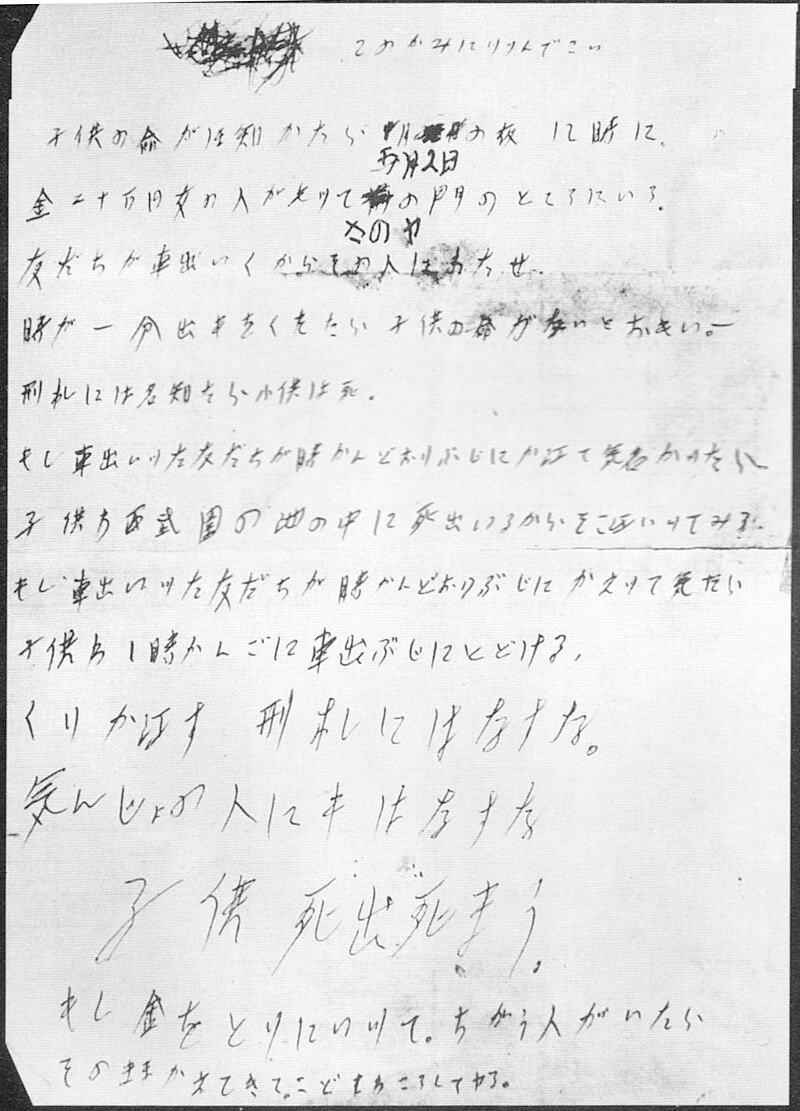 このかみにツツんでこい
子供の命がほ知かたら 月 の夜 12時に、
五月2日
金二十万円女の人がもツて の門のところにいろ。
さのヤ
友だちが車出いくからその人にわたせ。
時が一分出もをくれたら子供の命がないとおもい。
刑札には名知たら小供は死。
もし車出いツた友だちが時かんどおりぶじにかエて気名かツたら
子供わ西武園の池の中に死出いるからそこエいツてみろ。
もし車出いツた友だちが時かんどおりぶじにかエツて気たら
子供わ1時かんごに車出ぶじにとどける、
くりかエす 刑札にはなすな。
気んじょの人にもはなすな
子供死出死まう。
もし金をとりにいツて。ちがう人がいたら
そのままかエてきて。こどもわころしてヤる。